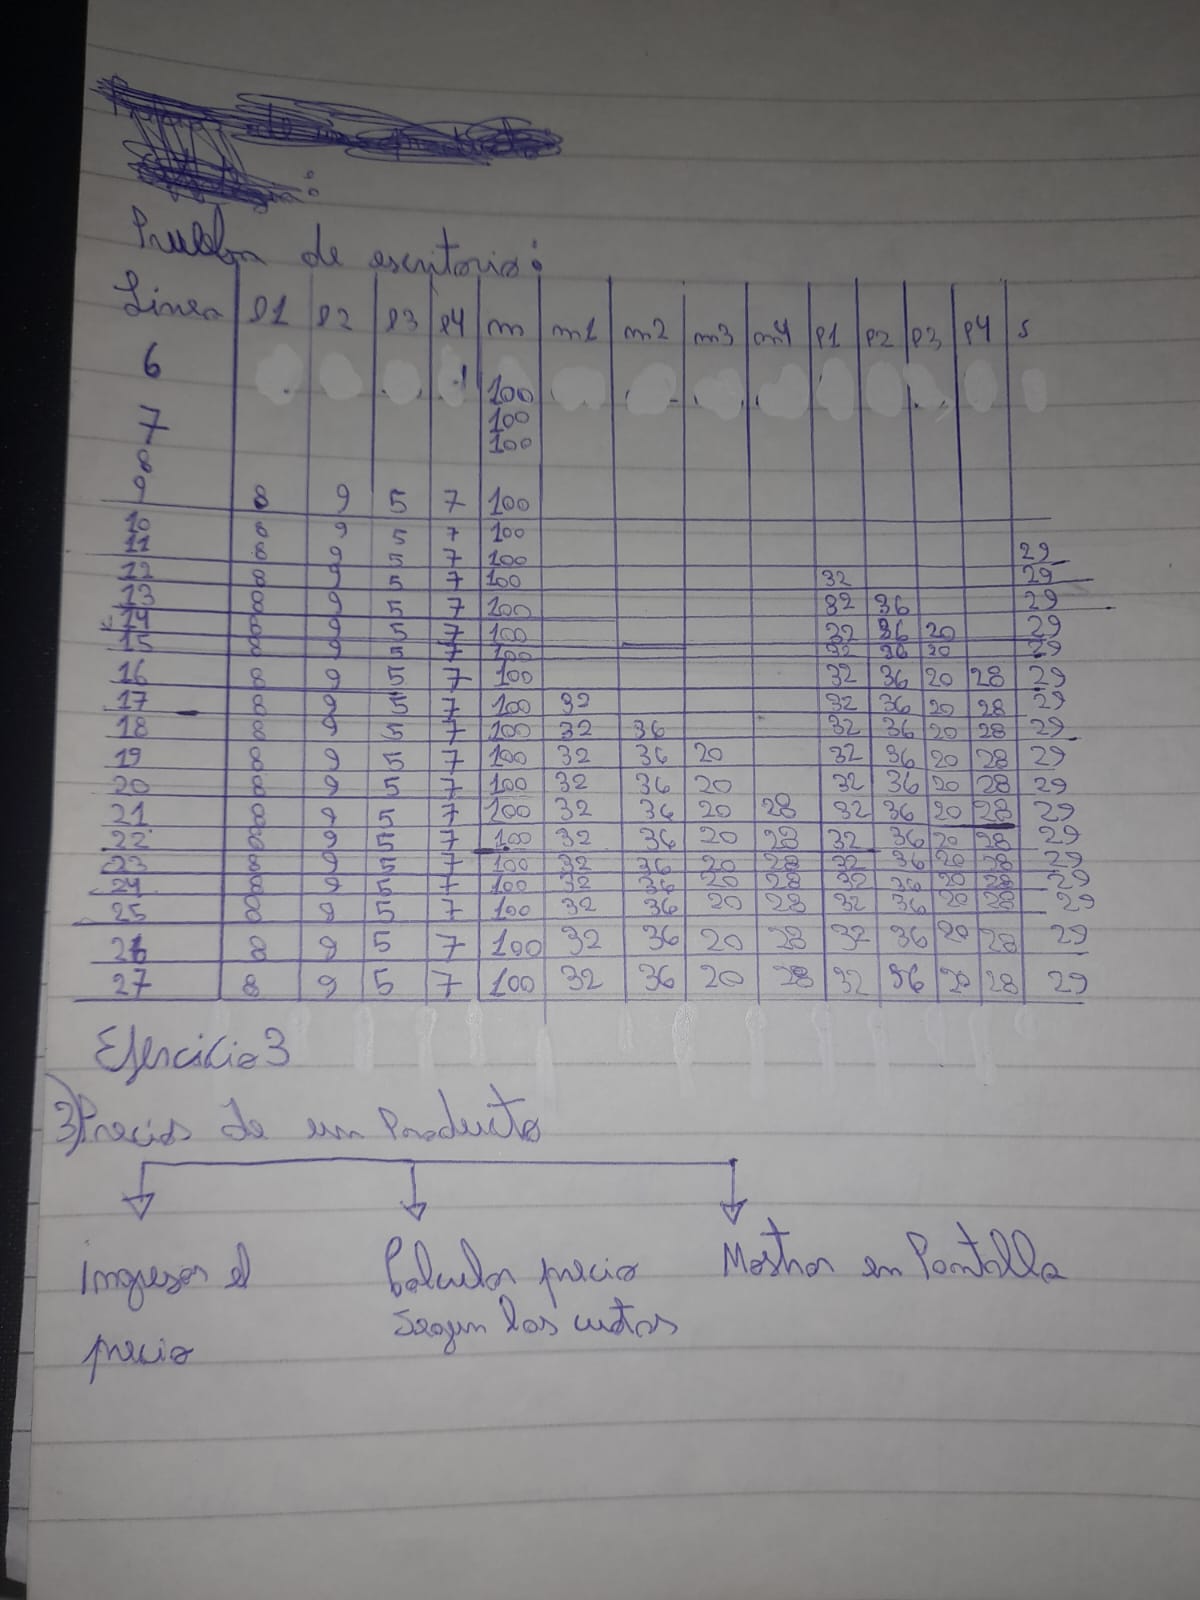 Prueba de escritorio:
Linea l1 l2 l3 l4 m m1 m2 m3 m4 p1 p2 p3 p4 s
6 100
7 100
8 100
9 8 9 5 7 100
10 8 9 5 7 100
11 8 9 5 7 100 29
12 8 9 5 7 100 32 29
13 8 9 5 7 100 32 36 29
14 8 9 5 7 100 32 36 20 29
15 8 9 5 7 100 32 36 20 29
16 8 9 5 7 100 32 36 20 28 29
17 8 9 5 7 100 32 32 36 20 28 29
18 8 9 5 7 100 32 36 32 36 20 28 29
19 8 9 5 7 100 32 36 20 32 36 20 28 29
20 8 9 5 7 100 32 36 20 32 36 20 28 29
21 8 9 5 7 100 32 36 20 28 32 36 20 28 29
22 8 9 5 7 100 32 36 20 28 32 36 20 28 29
23 8 9 5 7 100 32 36 20 28 32 36 20 28 29
24 8 9 5 7 100 32 36 20 28 32 36 20 28 29
25 8 9 5 7 100 32 36 20 28 32 36 20 28 29
26 8 9 5 7 100 32 36 20 28 32 36 20 28 29
27 8 9 5 7 100 32 36 20 28 32 36 20 28 29
Ejercicio 3
3) Precios de un Producto
Ingresar el Calcular precio Mostrar en Pantalla
precio Segun las cuotas